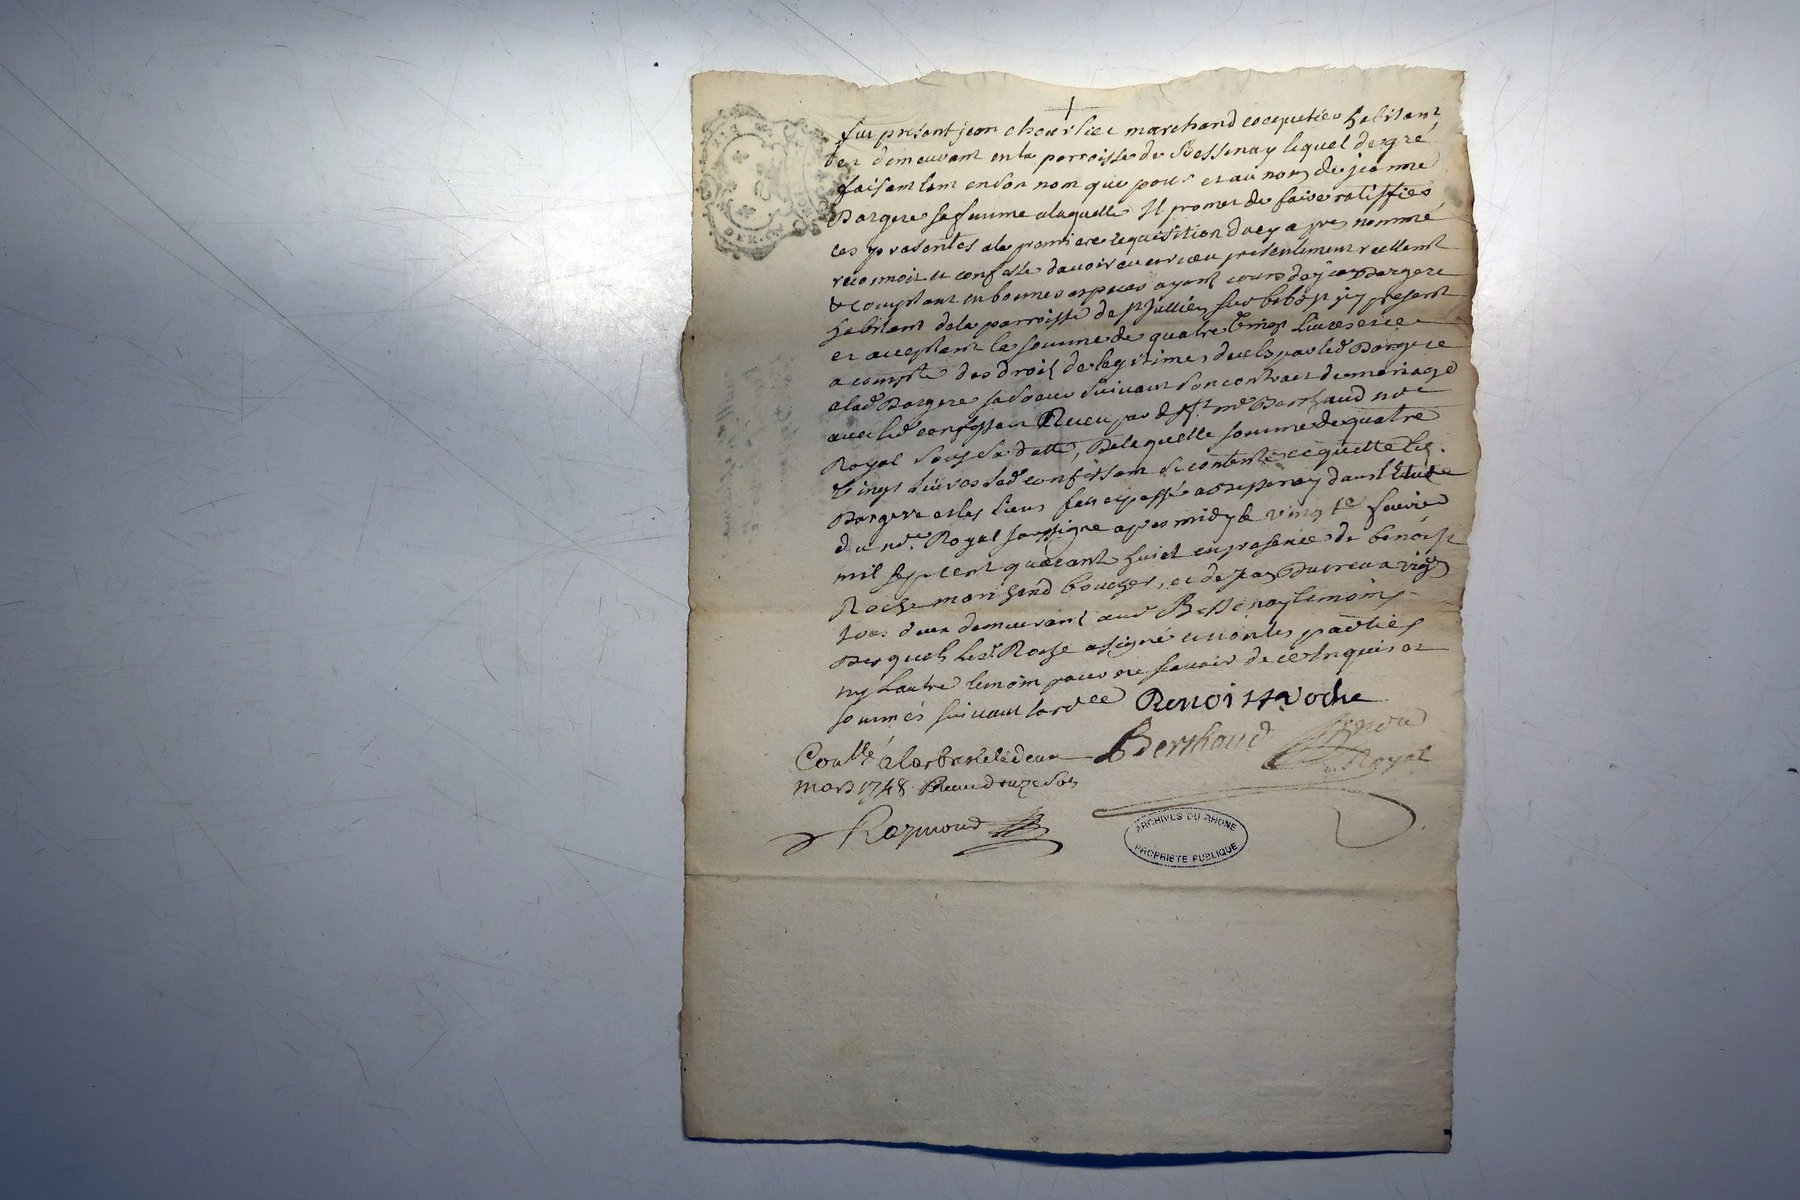 fut present jean charlier marchand cocquetier habitant
et demeurant en la parroisse de Bessenay lequel de gré
faisant tant en son nom que pour et au nom de jeanne
Bargere sa femme a laquelle Il promet de faire ratiffier
ces presentes a la premiere requisition du cy apres nommé
reconnoit et confesse d'avoir eu et receu presentement reellemt
& comptant en bonnes especes ayant cours de jean Bargere
habitant de la parroisse de st Jullien sur bibost icy present
et acceptant la somme de quatre vingt livres et ce
a compte des droit de legitimes deuels par led Bargere
a lad Bargere sa soeur suivant son contract de mariage
avec led confessant Receu par dt me Berthaud nore
Royal sous sa datte, De laquelle somme de quatre
vingt livres led confessant se contente
Bargere et les siens fait et passé a Bessenay dans l'Etude
du nre. Royal soussigné apres midy le vingt fevrier
mil sept cent quarant huict en presence de benoist
Roche marchand boucher, et de jean Ducreu a vigne
demeurant aud Bessenay temoins
Desquels led Roche a signé et non les parties
ny l'autre temoin pour ne scavoir de ce Enquis et
sommés suivant lord ce Benoist roche
Berthaud nore
Royal
Conlle a larbresle le deux
mars 1748 Receu douze sols
Raymond
ARCHIVES DU RHONE
PROPRIETE PUBLIQUE